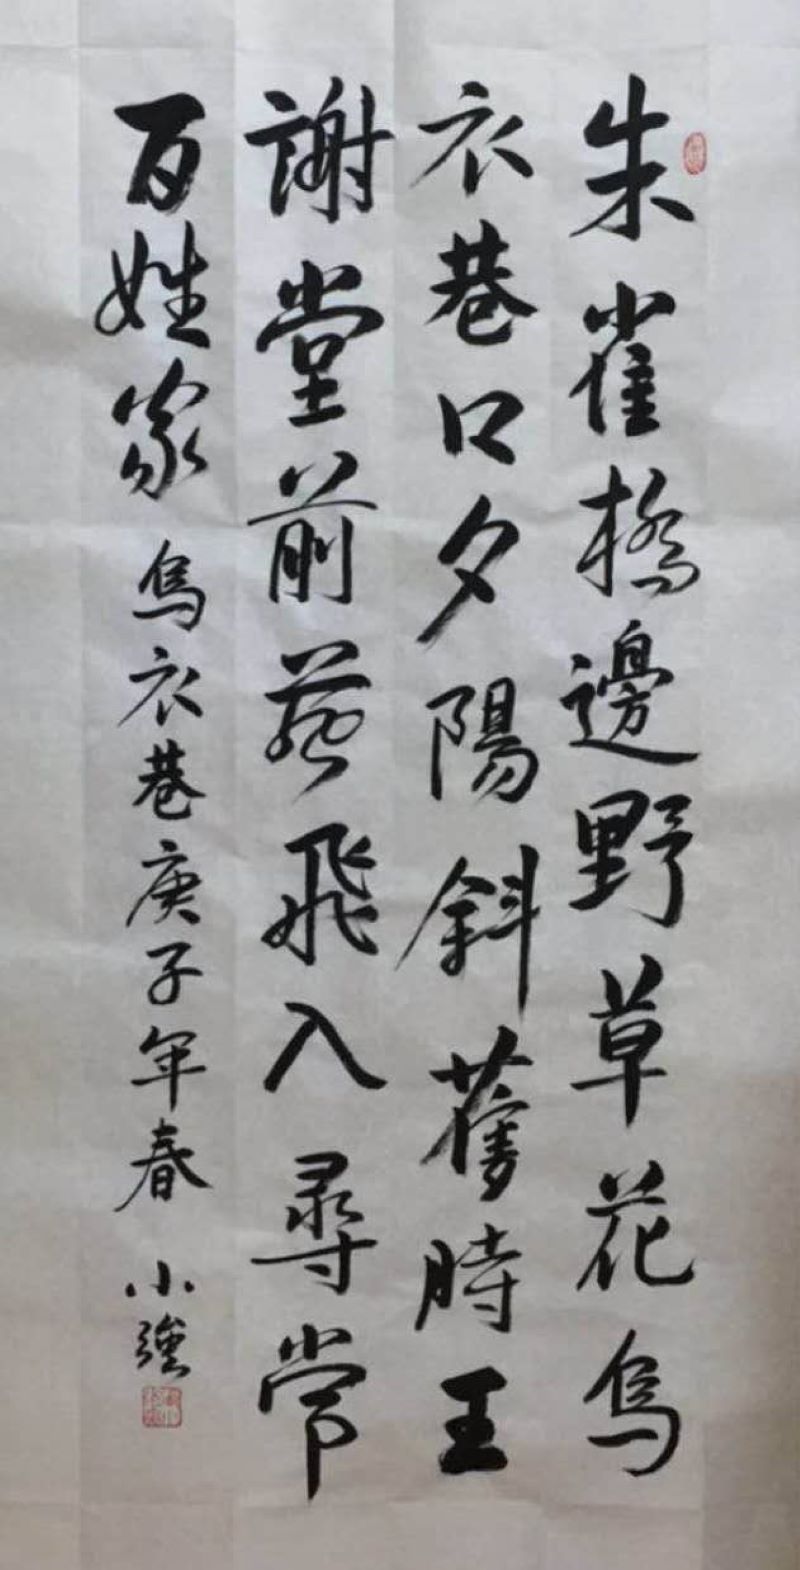 朱雀橋邊野草花烏
衣巷口夕陽斜舊時王
謝堂前燕飛入尋常
百姓家 烏衣巷庚子年春 小強